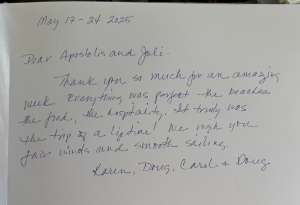 May 17-24 2025
Dear Apostolis and Juli-
Thank you so much for an amazing
week. Everything was perfect - the beaches
the food, the hospitality. It truly was
the trip of a lifetime! We wish you
fair winds and smooth sailing.
Karen, Doug, Carol + Doug